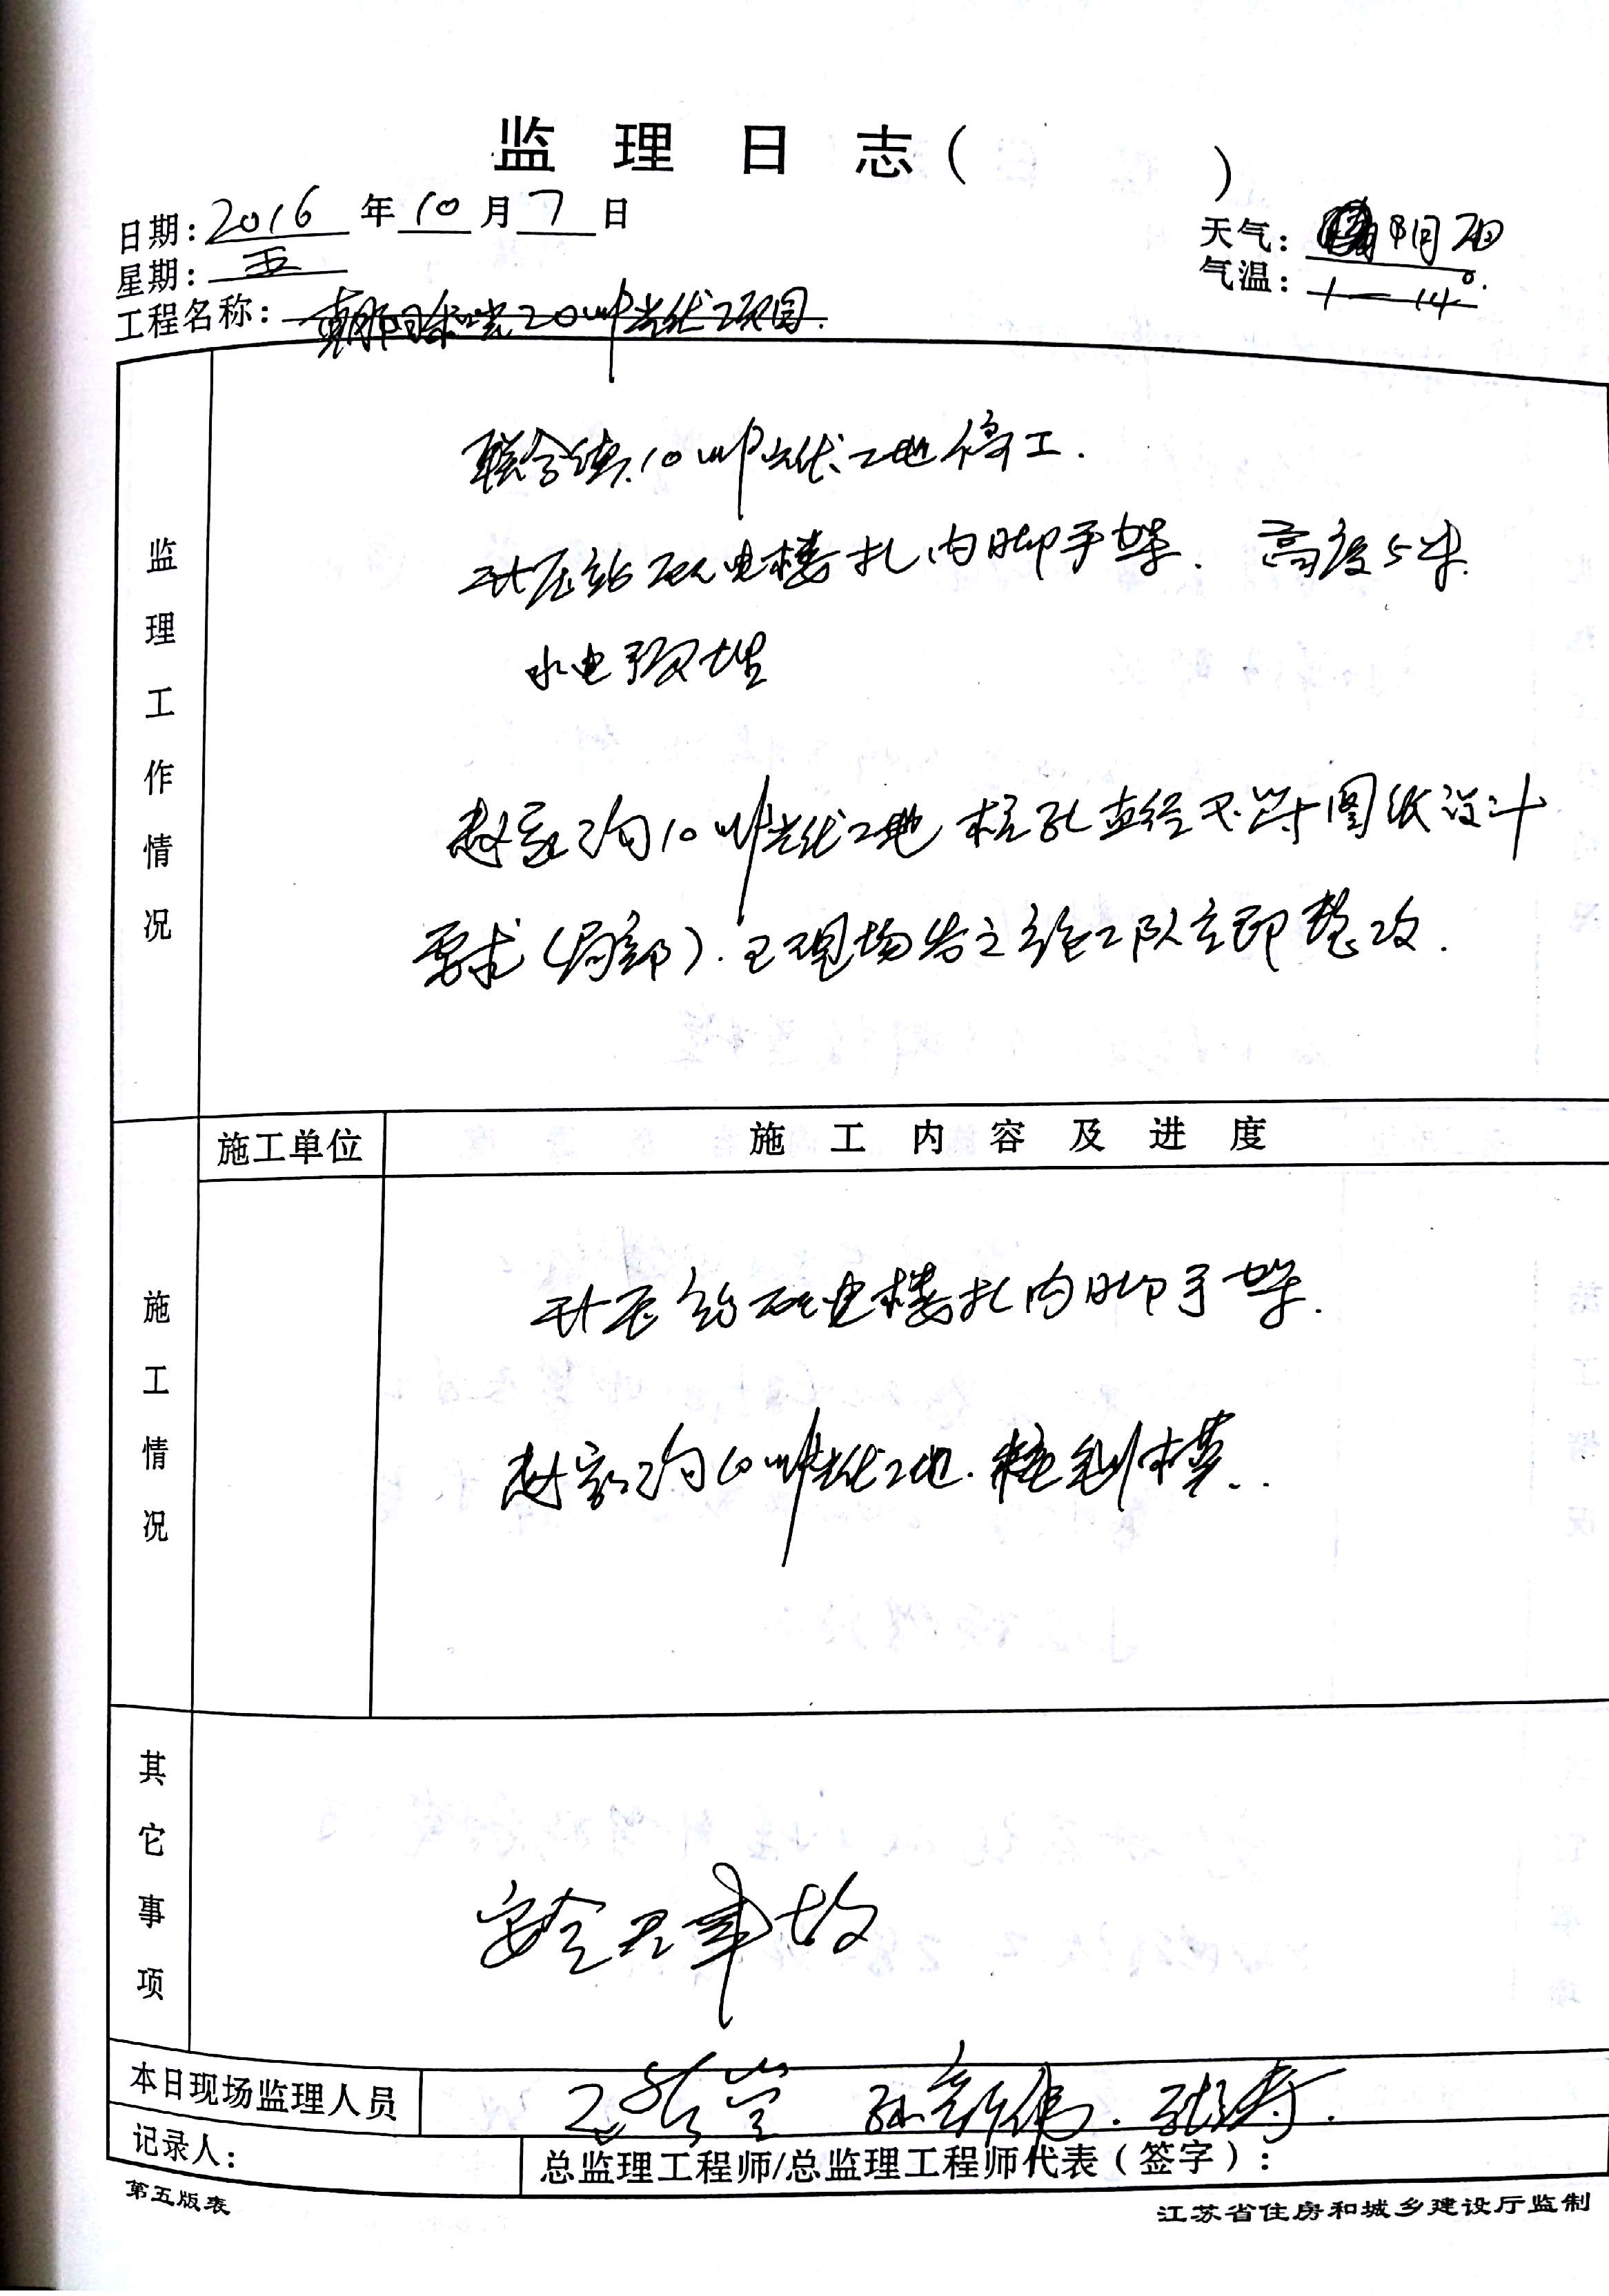 监理日志( )
日期:2016年10月7日
天气:阴
星期:五
气温:1-14°.
工程名称:朝阳 20MW光伏项目.
监理工作情况
联合 10MW光伏工地停工.
升压站配电楼扎内脚手架. 高度5米.
水电预埋
赵家沟10MW光伏工地 桩孔直径不符图纸设计
要求(局部).已现场告之施工队立即整改.
施工单位
施工内容及进度
施工情况
升压站配电楼扎内脚手架.
赵家沟10MW光伏工地.
其它事项
安全无事故
本日现场监理人员
孙新伟. 张涛.
记录人:
总监理工程师/总监理工程师代表(签字):
第五版表
江苏省住房和城乡建设厅监制